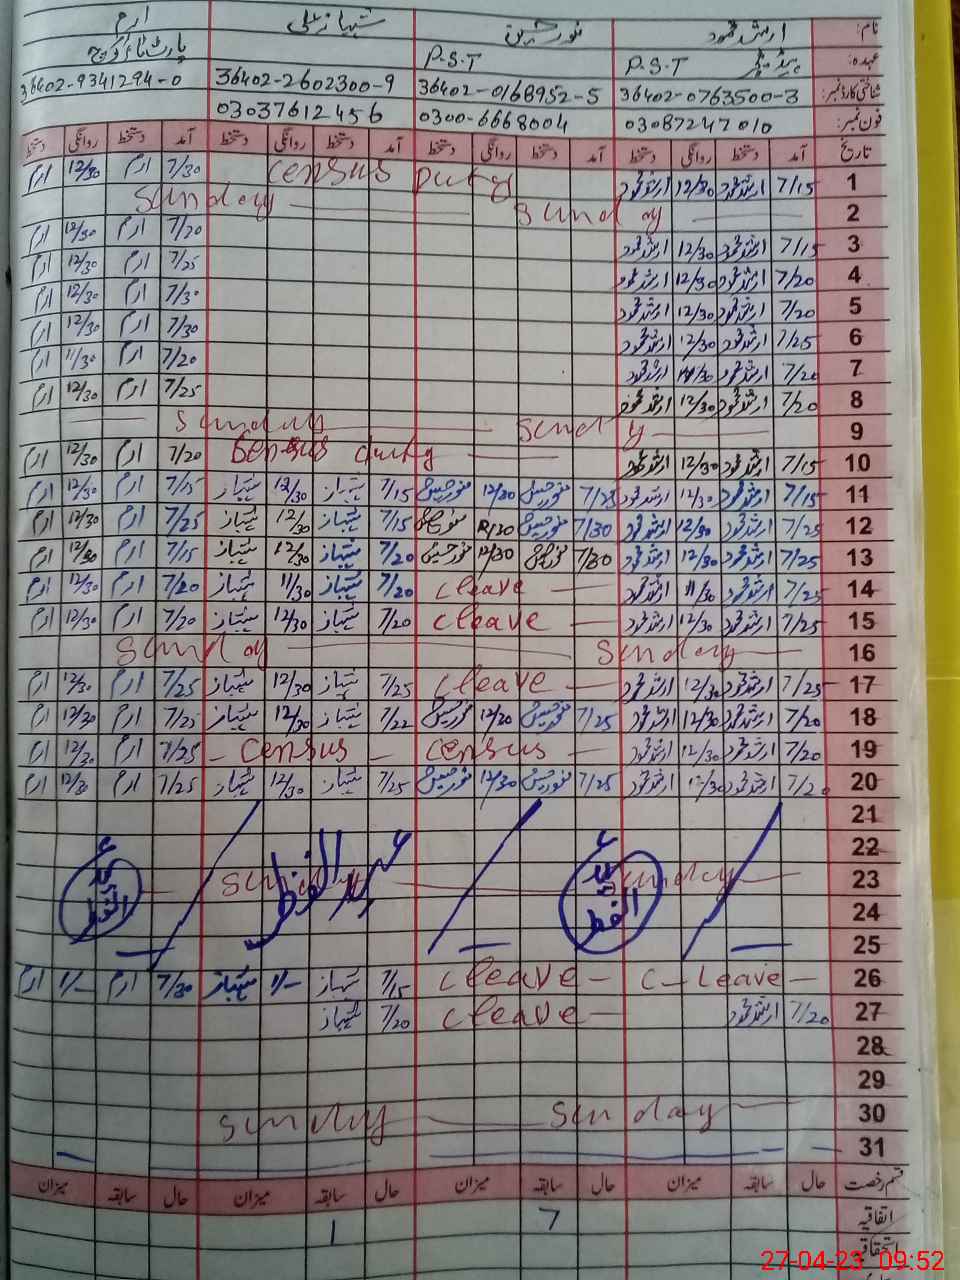 نام: ارشد محمود نور حسین شہباز علی ارم
عہدہ: ہیڈ ٹیچر P.S.T P.S.T پارٹ ٹائم کوچ
شناختی کارڈ نمبر: 36402-0763500-3 36402-0168952-5 36402-2602300-9 36402-9341294-0
فون نمبر: 03087247010 0300-6668004 03037612456
تاریخ آمد دستخط روانگی دستخط آمد دستخط روانگی دستخط آمد دستخط روانگی دستخط آمد دستخط روانگی دستخط
1 7/15 ارشد محمود 12/30 ارشد محمود Census Duty 7/30 ارم 12/30 ارم
2 Sunday Sunday
3 7/15 ارشد محمود 12/30 ارشد محمود 7/20 ارم 12/30 ارم
4 7/20 ارشد محمود 12/30 ارشد محمود 7/25 ارم 12/30 ارم
5 7/20 ارشد محمود 12/30 ارشد محمود 7/30 ارم 12/30 ارم
6 7/25 ارشد محمود 12/30 ارشد محمود 7/30 ارم 12/30 ارم
7 7/20 ارشد محمود 11/30 ارشد محمود 7/20 ارم 11/30 ارم
8 7/20 ارشد محمود 12/30 ارشد محمود 7/25 ارم 12/30 ارم
9 Sunday Sunday
10 7/15 ارشد محمود 12/30 ارشد محمود Census duty 7/20 ارم 12/30 ارم
11 7/15 ارشد محمود 12/30 ارشد محمود 7/25 نور حسین 12/30 نور حسین 7/15 شہباز 12/30 شہباز 7/15 ارم 12/30 ارم
12 7/25 ارشد محمود 12/30 ارشد محمود 7/30 نور حسین 12/30 نور حسین 7/15 شہباز 12/30 شہباز 7/25 ارم 12/30 ارم
13 7/25 ارشد محمود 12/30 ارشد محمود 7/30 نور حسین 12/30 نور حسین 7/20 شہباز 12/30 شہباز 7/15 ارم 12/30 ارم
14 7/25 ارشد محمود 11/30 ارشد محمود cleave 7/20 شہباز 11/30 شہباز 7/20 ارم 12/30 ارم
15 7/25 ارشد محمود 12/30 ارشد محمود cleave 7/20 شہباز 12/30 شہباز 7/20 ارم 12/30 ارم
16 Sunday Sunday
17 7/25 ارشد محمود 12/30 ارشد محمود cleave 7/25 شہباز 12/30 شہباز 7/25 ارم 12/30 ارم
18 7/20 ارشد محمود 12/30 ارشد محمود 7/25 نور حسین 12/30 نور حسین 7/22 شہباز 12/30 شہباز 7/25 ارم 12/30 ارم
19 7/20 ارشد محمود 12/30 ارشد محمود census census 7/25 ارم 12/30 ارم
20 7/20 ارشد محمود 12/30 ارشد محمود 7/25 نور حسین 12/30 نور حسین 7/25 شہباز 12/30 شہباز 7/25 ارم 12/30 ارم
21
22 عید الفطر عید الفطر عید الفطر
23 Sunday Sunday
24
25
26 C-Leave cleave 7/15 شہباز 1/- شہباز 7/30 ارم 1/- ارم
27 7/20 ارشد محمود cleave 7/20 شہباز
28
29
30 Sunday Sunday
31
قسم رخصت حال سابقہ میزان حال سابقہ میزان حال سابقہ میزان حال سابقہ میزان
اتفاقیہ 7 1
استحقاقیہ
27-04-23 09:52